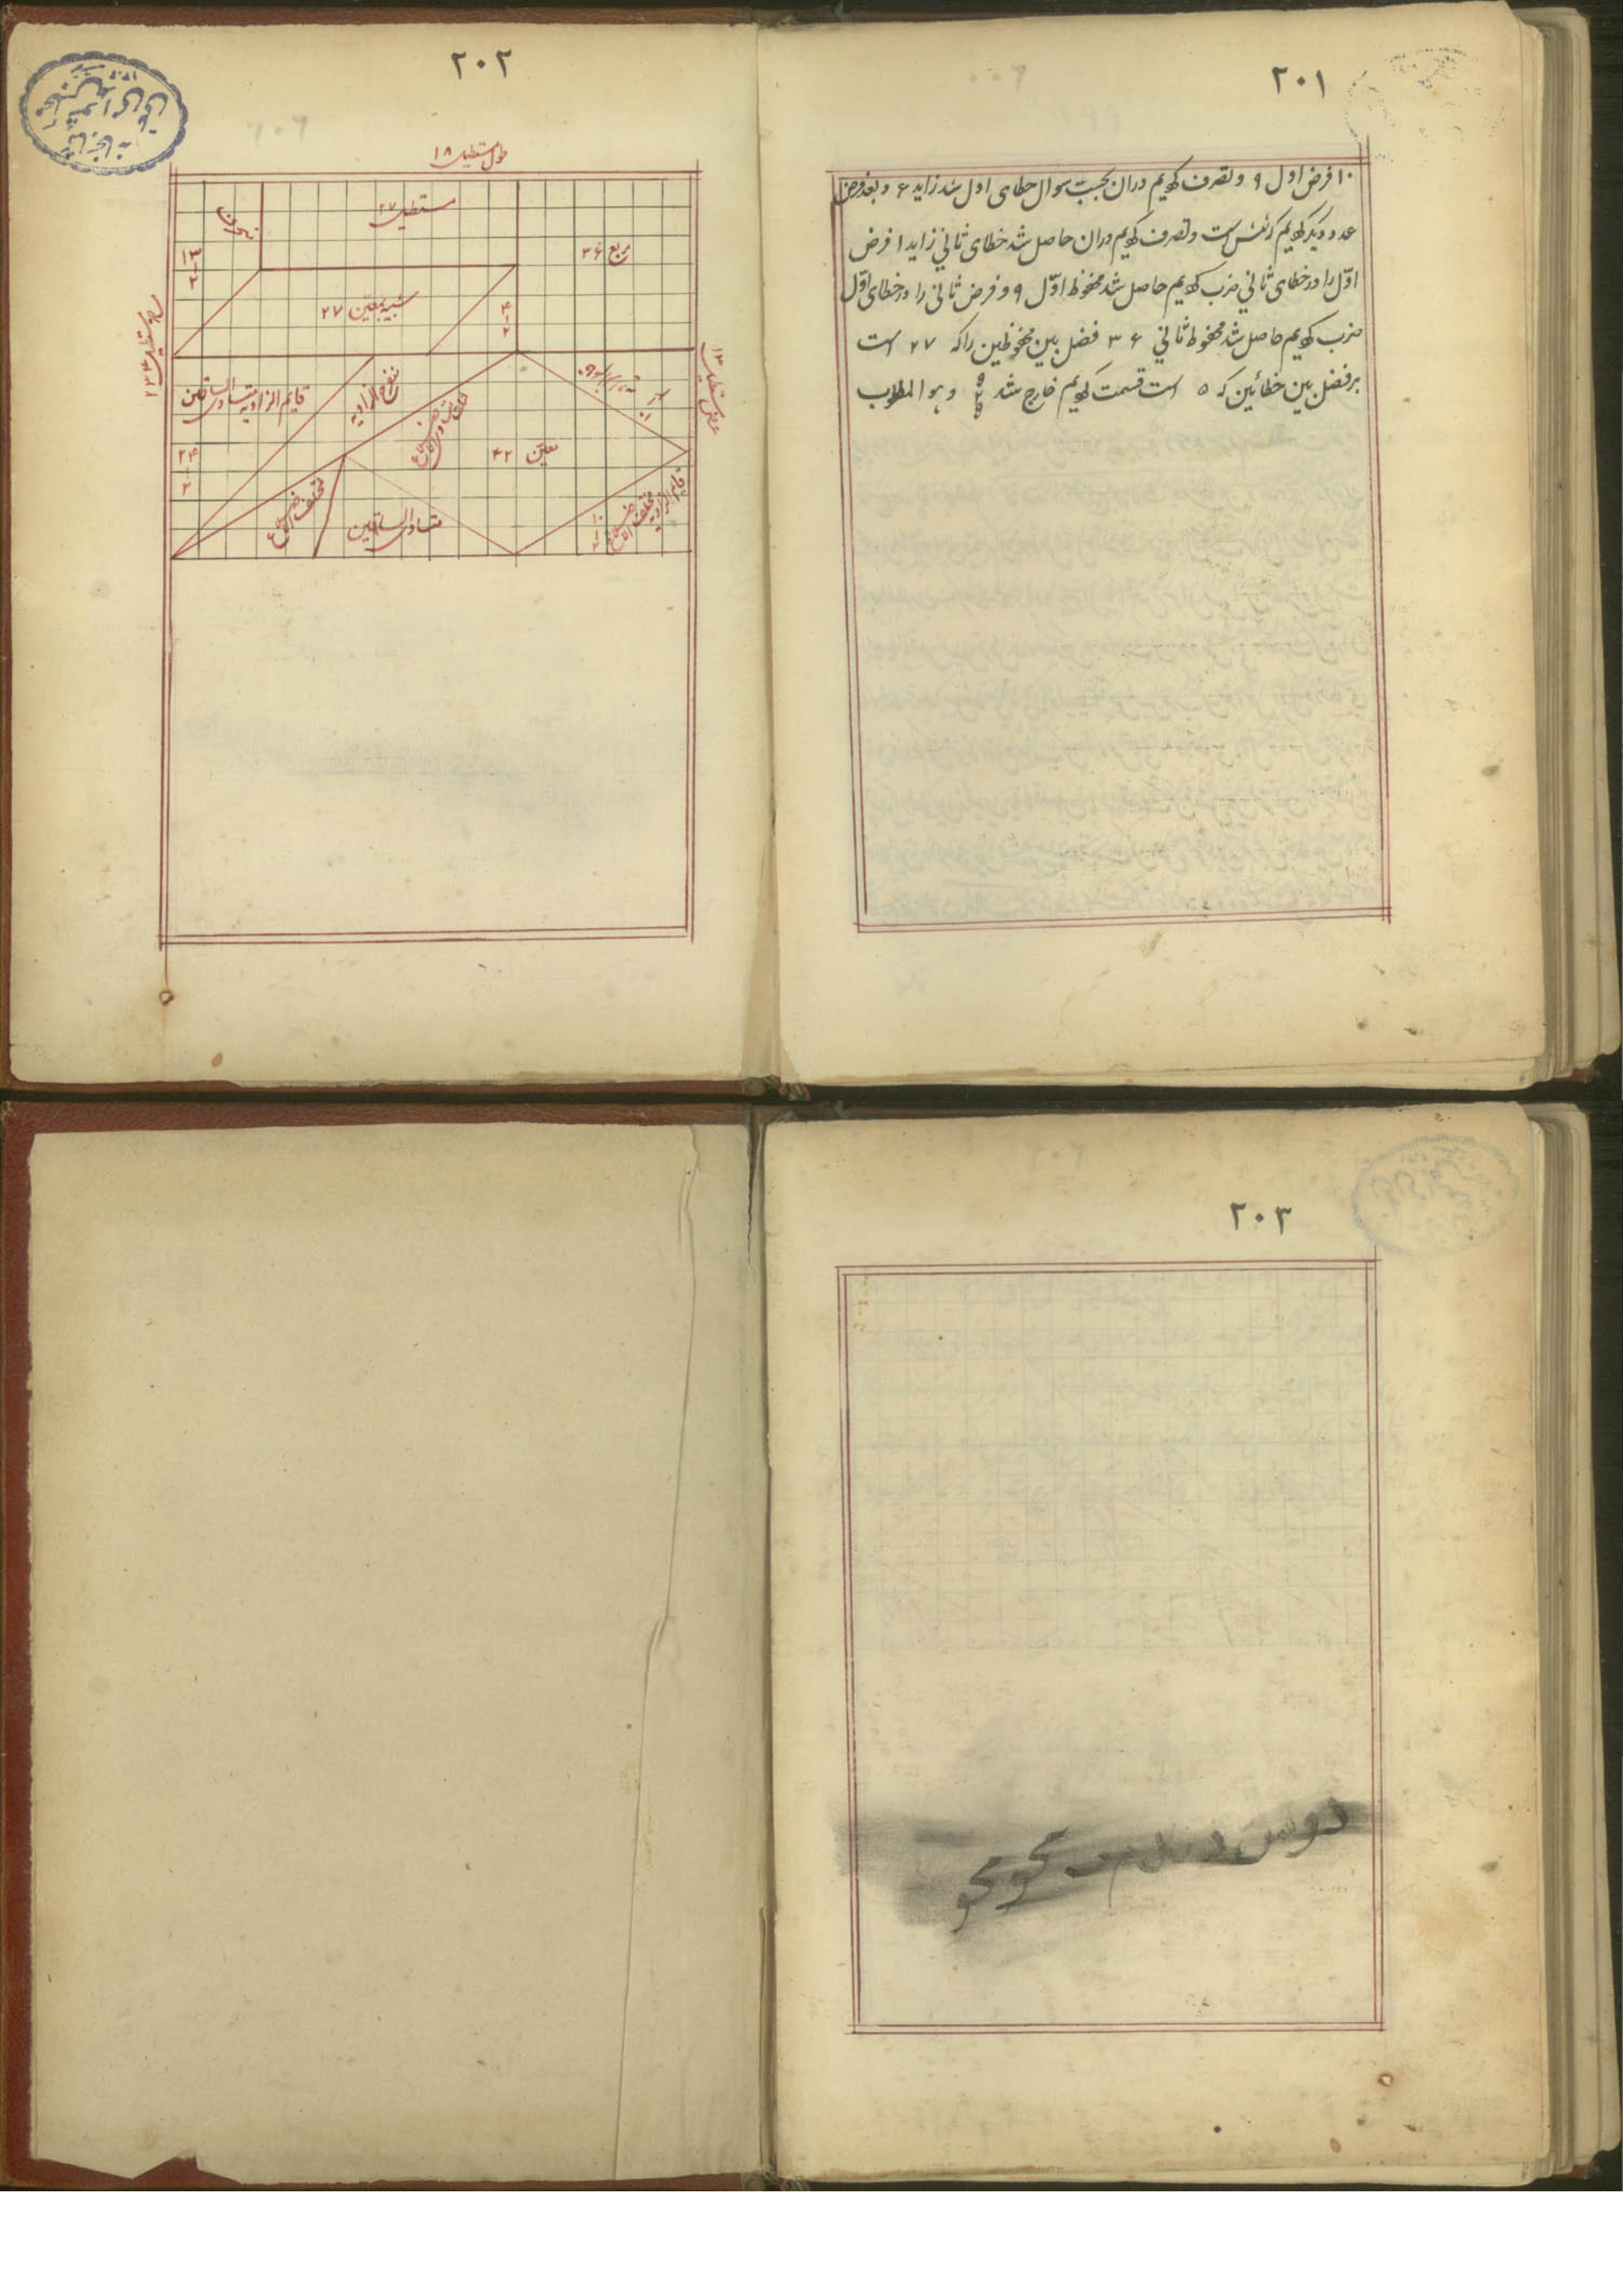 ۲۰۱
۱۰ فرض اول ۹ و تصرف کردیم دران بحسب سوال خطای اول شد زاید ۶ و بعد فرض
عدد دیگر کردیم که شش است و تصرف کردیم دران حاصل شد خطای ثانی زاید ۱ فرض
اوّل را در خطای ثانی ضرب کردیم حاصل شد محفوظ اوّل ۹ و فرض ثانی را در خطای اوّل
ضرب کردیم حاصل شد محفوظ ثانی ۳۶ فضل بین محفوظین را که ۲۷ است
بر فضل بین خطائین که ۵ است قسمت کردیم خارج شد ۵ ۲ ۵ و هو المطلوب
۲۰۲
طول مستطیل ۱۸
منحرف
۱۳
۱
۲
مستطیل ۲۷
مربع ۳۶
شبیه بمعین ۲۷
۴
۱
۲
مساحت مستطیل ۲۳۴
عرض مستطیل ۱۳
قایم الزاویه متساوی الساقین
۲۴
۱
۲
منفرج الزاویه
معین ۴۲
مختلف الاضلاع
متساوی الساقین
قایم الزاویه مختلف الاضلاع
۲۰۳